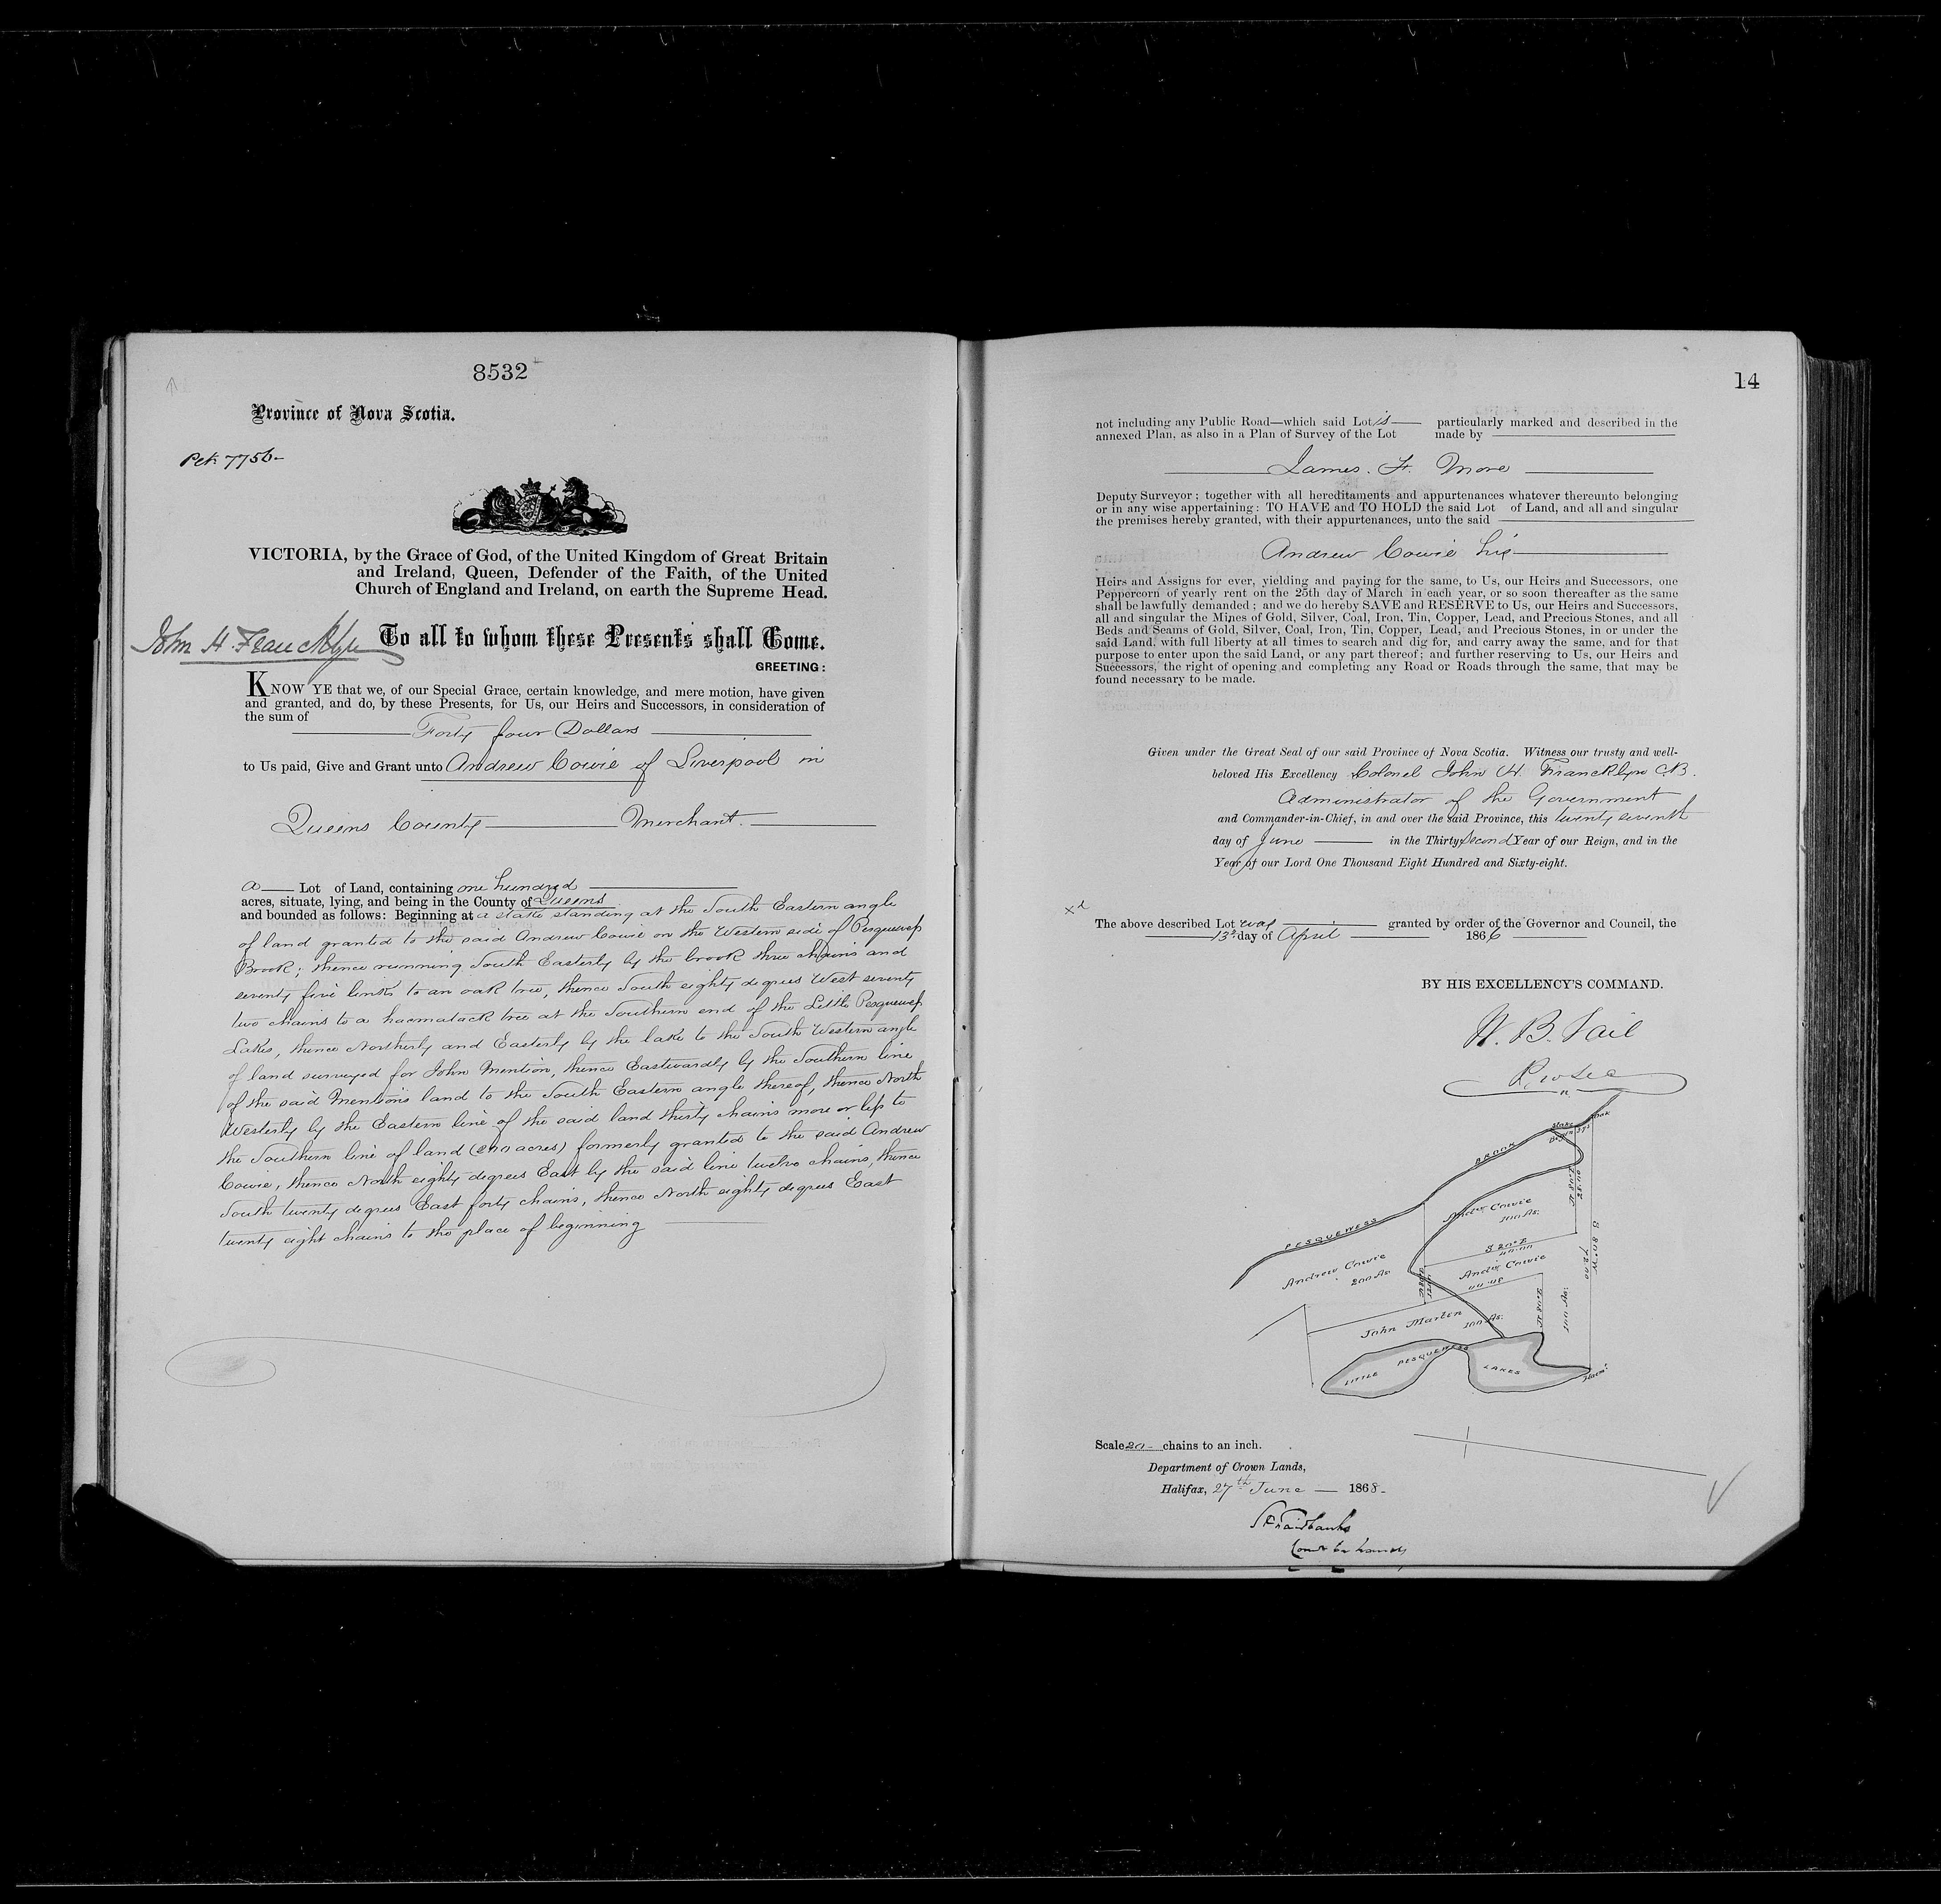 8532
Province of Nova Scotia.
Pet. 7756
VICTORIA, by the Grace of God, of the United Kingdom of Great Britain
and Ireland, Queen, Defender of the Faith, of the United
Church of England and Ireland, on earth the Supreme Head.
John H. Francklyn
To all to whom these Presents shall Come.
GREETING:
KNOW YE that we, of our Special Grace, certain knowledge, and mere motion, have given
and granted, and do, by these Presents, for Us, our Heirs and Successors, in consideration of
the sum of
Forty four Dollars
to Us paid, Give and Grant unto Andrew Cowie of Liverpool in
Queens County Merchant.
a Lot of Land, containing one hundred
acres, situate, lying, and being in the County of Queens
and bounded as follows: Beginning at a stake standing at the South Eastern angle
of land granted to the said Andrew Cowie on the Western side of Pesquewess
Brook; thence running South Easterly by the brook three chains and
seventy five links to an oak tree, thence South eighty degrees West seventy
two chains to a haematack tree at the Southern end of the Little Pesquewess
Lakes, thence Northerly and Easterly by the lake to the South Western angle
of land surveyed for John Mention, thence Eastwardly by the Southern line
of the said Mentions land to the South Eastern angle thereof, thence North
Westerly by the Eastern line of the said land thirty chains more or less to
the Southern line of land (200 acres) formerly granted to the said Andrew
Cowie, thence North eighty degrees East by the said line twelve chains, thence
South twenty degrees East forty chains, thence North eighty degrees East
twenty eight chains to the place of beginning
14
not including any Public Road—which said Lot is particularly marked and described in the
annexed Plan, as also in a Plan of Survey of the Lot made by
James. F. More
Deputy Surveyor; together with all hereditaments and appurtenances whatever thereunto belonging
or in any wise appertaining: TO HAVE and TO HOLD the said Lot of Land, and all and singular
the premises hereby granted, with their appurtenances, unto the said
Andrew Cowie his
Heirs and Assigns for ever, yielding and paying for the same, to Us, our Heirs and Successors, one
Peppercorn of yearly rent on the 25th day of March in each year, or so soon thereafter as the same
shall be lawfully demanded; and we do hereby SAVE and RESERVE to Us, our Heirs and Successors,
all and singular the Mines of Gold, Silver, Coal, Iron, Tin, Copper, Lead, and Precious Stones, and all
Beds and Seams of Gold, Silver, Coal, Iron, Tin, Copper, Lead, and Precious Stones, in or under the
said Land, with full liberty at all times to search and dig for, and carry away the same, and for that
purpose to enter upon the said Land, or any part thereof; and further reserving to Us, our Heirs and
Successors, the right of opening and completing any Road or Roads through the same, that may be
found necessary to be made.
Given under the Great Seal of our said Province of Nova Scotia. Witness our trusty and well-
beloved His Excellency Colonel John H. Francklyn CB.
Administrator of the Government
and Commander-in-Chief, in and over the said Province, this twenty seventh
day of June in the Thirty Second Year of our Reign, and in the
Year of our Lord One Thousand Eight Hundred and Sixty-eight.
The above described Lot was granted by order of the Governor and Council, the
13th day of April 1866
BY HIS EXCELLENCY'S COMMAND.
W. B. Vail
Prov Sec
BROOK
PESQUEWESS
Andw Cowie
100 As.
Andrew Cowie
200 As
S 20° E
40.00
Andw Cowie
40.00
S 80° W
72.00
100 As.
John Marten
100 As.
LITTLE PESQUEWESS LAKES
Scale 20 chains to an inch.
Department of Crown Lands,
Halifax, 27th June 1868
S P Fairbanks